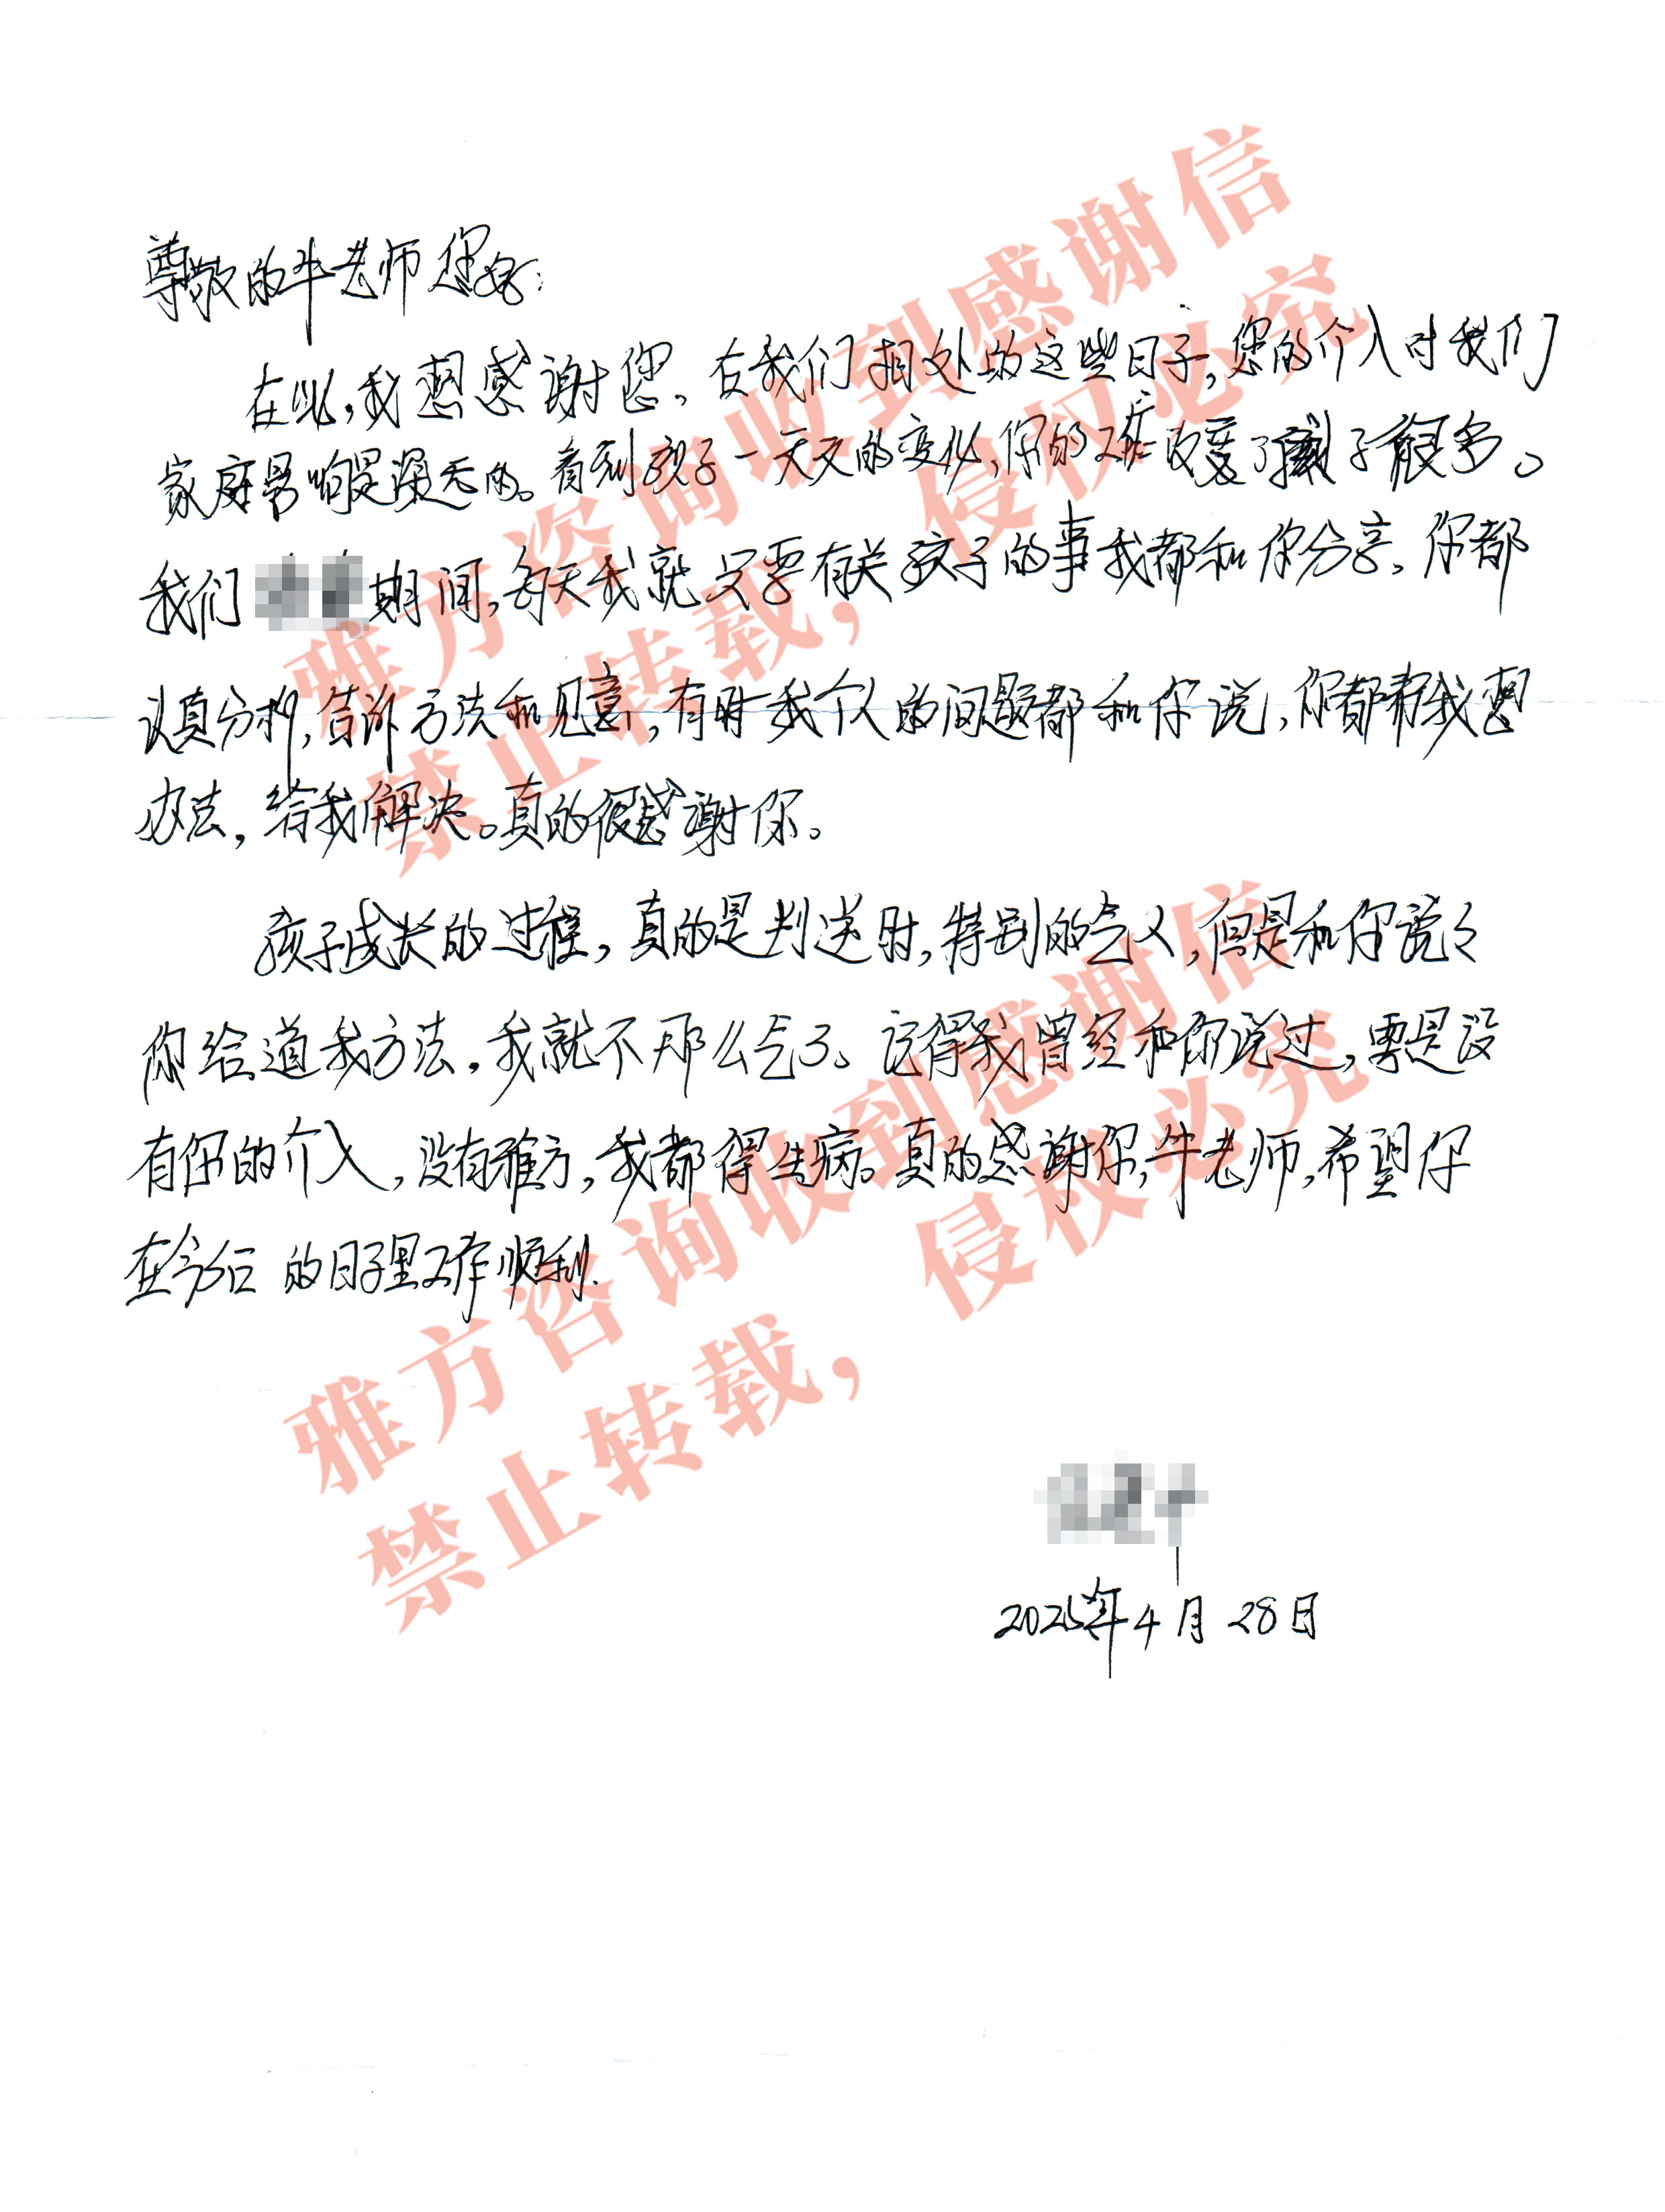 尊敬的牛老师您好:
在此,我想感谢您。在我们相处的这些日子,您的介入对我们
家庭影响是深远的。看到孩子一天天的变化,你的工作改变了孩子很多。
我们期间,每天我就只要有关孩子的事我都和你分享。你都
认真分析,告诉方法和见意,有时我个人的问题都和你说,你都帮我想
办法,给我解决。真的很感谢你。
孩子成长的过程,真的是判逆时,特别的气人,但是和你说々
你给道我方法,我就不那么气了。记得我曾经和你说过,要是没
有你的介入,没有雅方,我都得生病。真的感谢你,牛老师,希望你
在今后的日子里工作顺利.
2025年4月28日
雅方咨询收到感谢信
禁止转载,侵权必究
雅方咨询收到感谢信
禁止转载,侵权必究